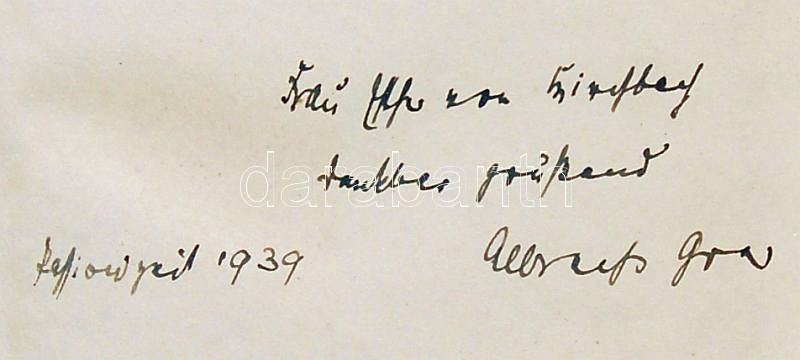 Frau Esther von Kirchbach
dankbar grüßend
Passionszeit 1939
Albrecht Goes
darabanth